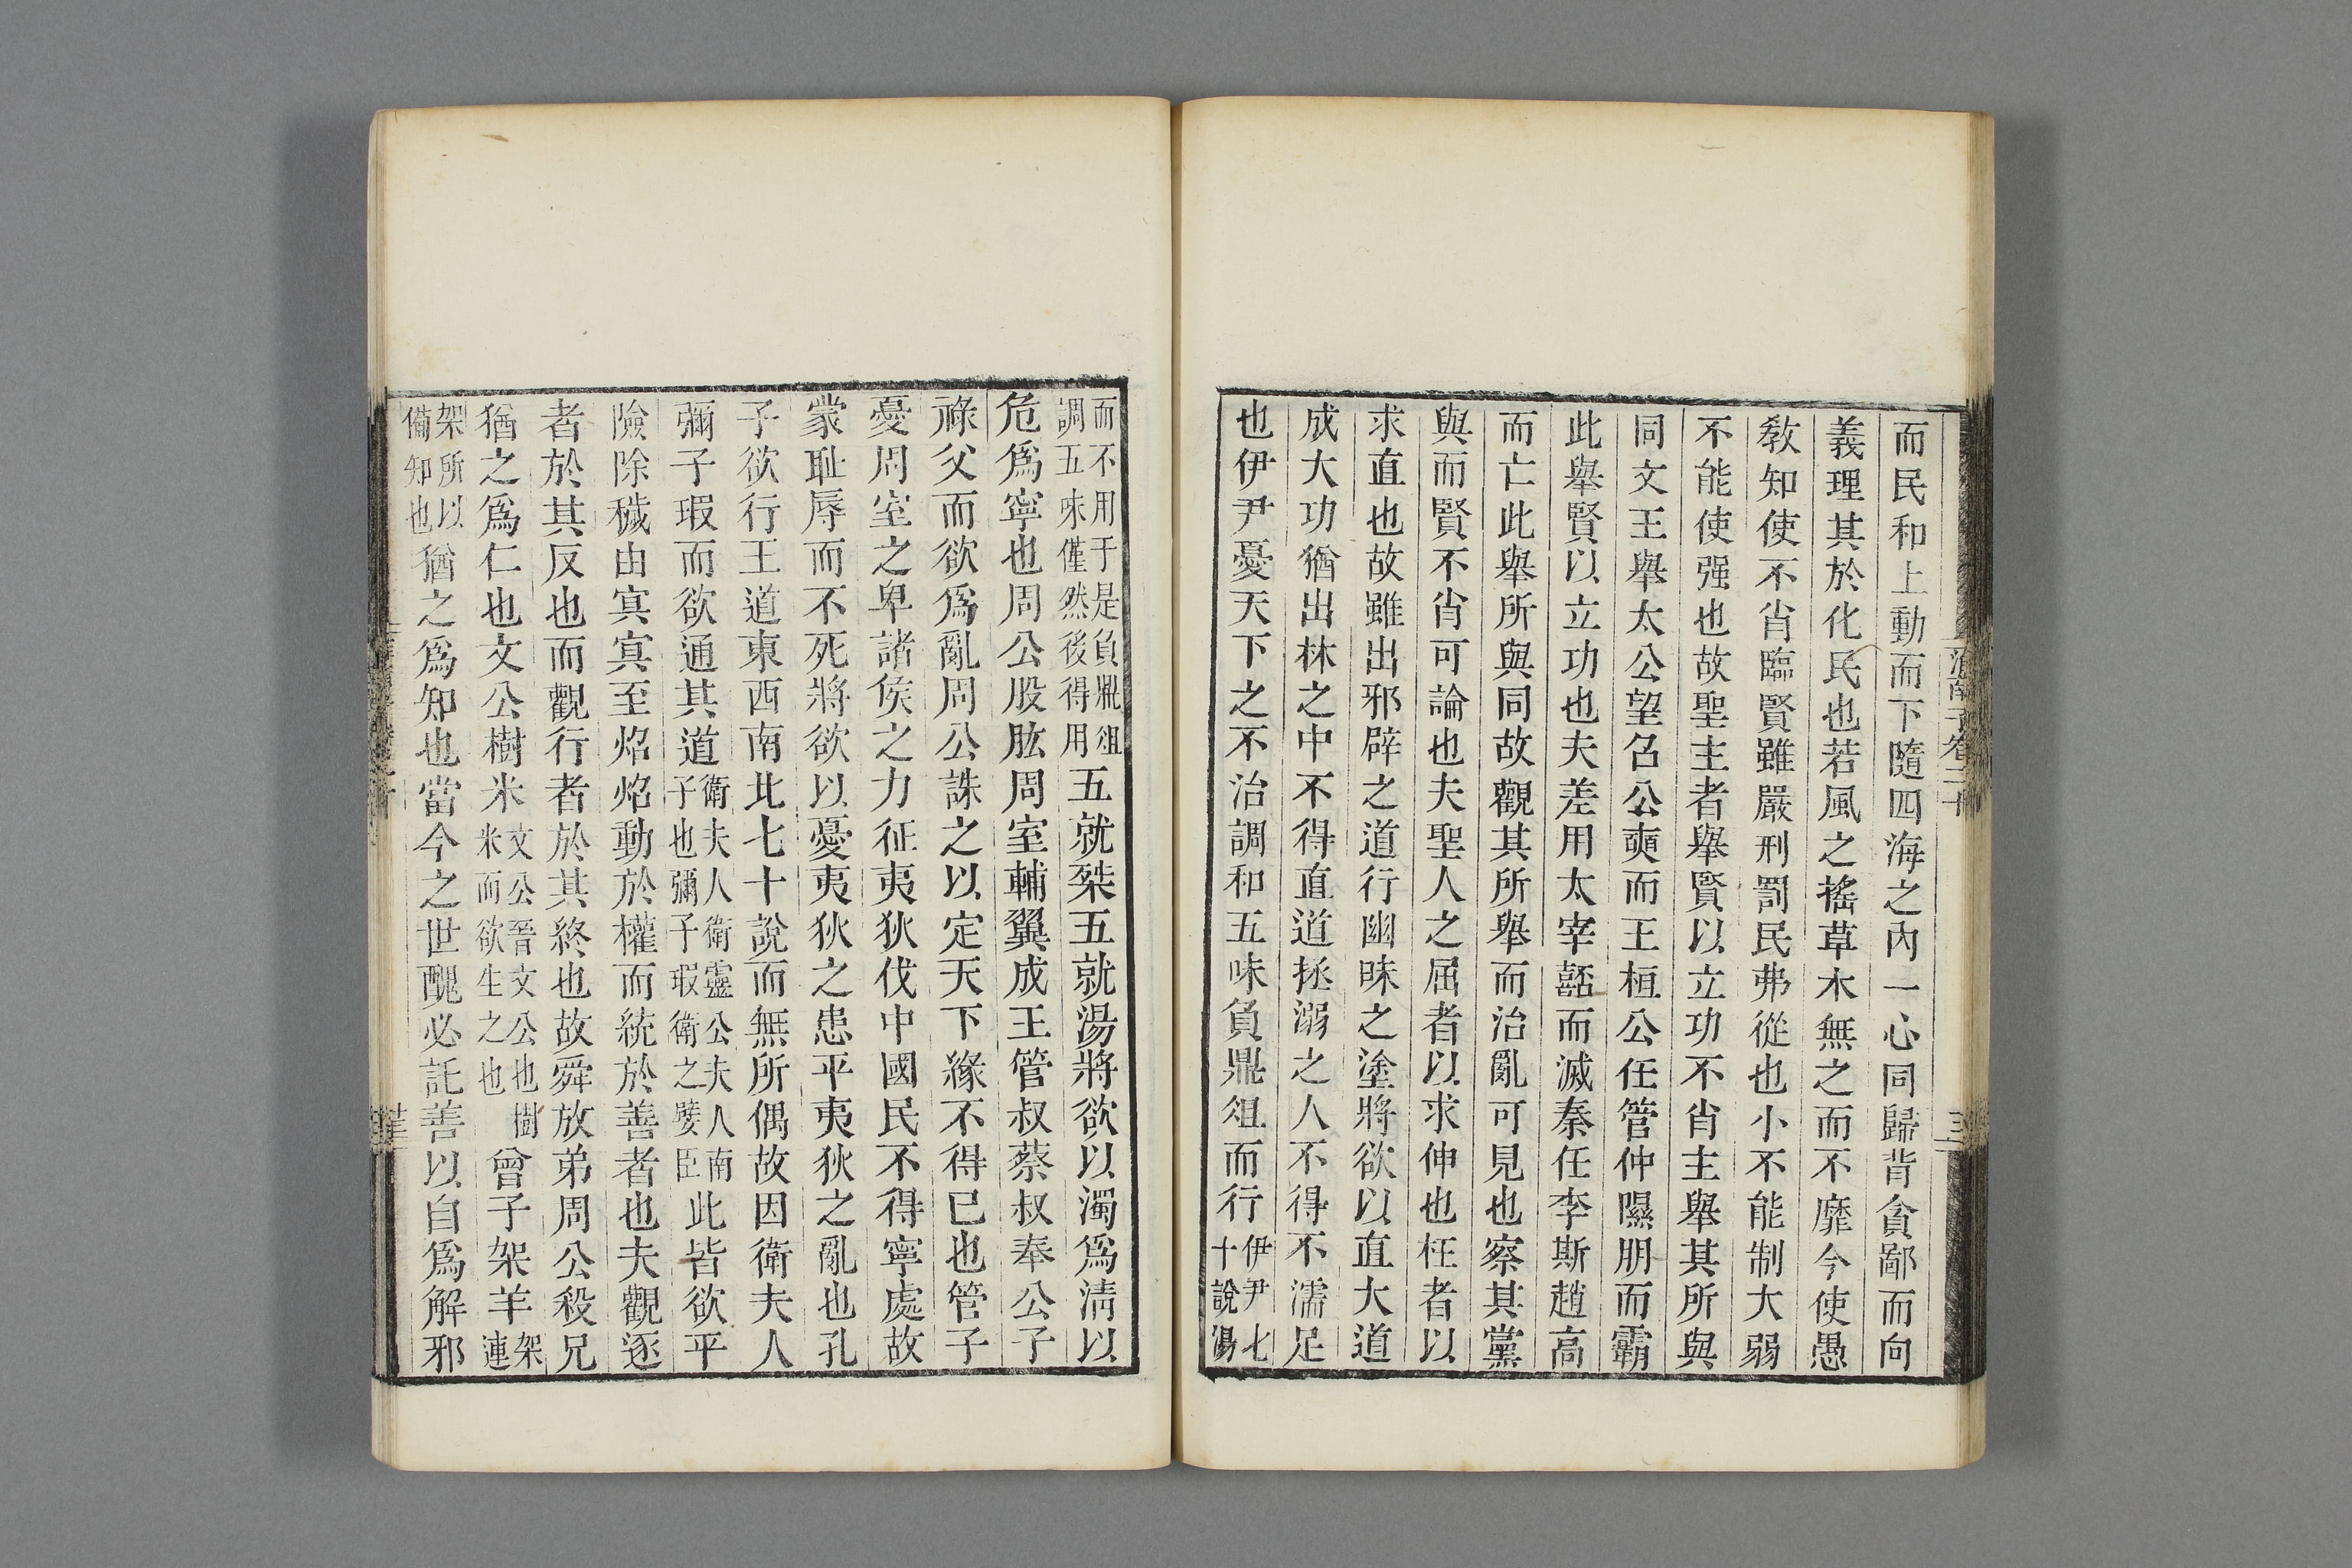 而民和上動而下隨四海之內一心同歸背貪鄙而向
義理其於化民也若風之搖草木無之而不靡今使愚
敎知使不肖臨賢雖嚴刑罰民弗從也小不能制大弱
不能使强也故聖主者舉賢以立功不肖主舉其所與
同文王舉太公望召公奭而王桓公任管仲隰朋而霸
此舉賢以立功也夫差用太宰嚭而滅秦任李斯趙高
而亡此舉所與同故觀其所舉而治亂可見也察其黨
與而賢不肖可論也夫聖人之屈者以求伸也枉者以
求直也故雖出邪辟之道行幽昧之塗將欲以直大道
成大功猶出林之中不得直道拯溺之人不得不濡足
也伊尹憂天下之不治調和五味負鼎俎而行伊尹七十說湯
而不用于是負鼎俎調五味僅然後得用五就桀五就湯將欲以濁爲淸以
危爲寧也周公股肱周室輔翼成王管叔蔡叔奉公子
祿父而欲爲亂周公誅之以定天下緣不得已也管子
憂周室之卑諸侯之力征夷狄伐中國民不得寧處故
蒙耻辱而不死將欲以憂夷狄之患平夷狄之亂也孔
子欲行王道東西南北七十說而無所偶故因衛夫人
彌子瑕而欲通其道衛夫人衛靈公夫人南子也彌子瑕衛之嬖臣此皆欲平
險除穢由冥冥至炤炤動於權而統於善者也夫觀逐
者於其反也而觀行者於其終也故舜放弟周公殺兄
猶之爲仁也文公樹米文公晉文公也樹米而欲生之也曾子架羊架連
架所以備知也猶之爲知也當今之世醜必託善以自爲解邪